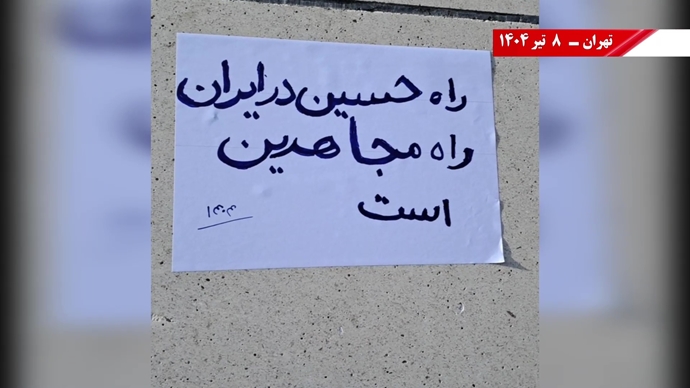 تهران ـ ۸ تیر ۱۴۰۴
راه حسین در ایران
راه مجاهدین
است